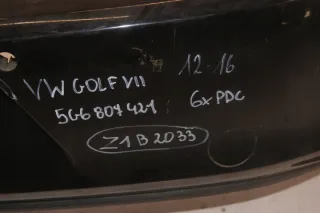 VW GOLF VII 12-16
5G6 807 421 6xPDC
Z1B2033